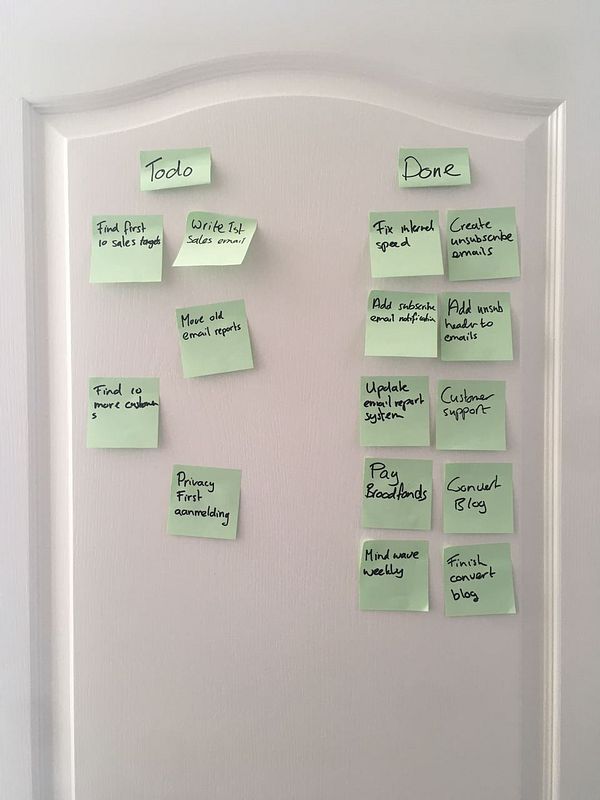 Todo
Find first
10 sales targets
Write 1st
Sales email
Move old
email reports
Find 10
more customer
s
Privacy
First
aanmelding
Done
Fix internet
speed
Create
unsubscribe
emails
Add subscribe
email notification
Add unsub
header to
emails
Update
email report
system
Customer
support
Pay
Broodfonds
Convert
Blog
Mind wave
weekly
Finish
convert
blog